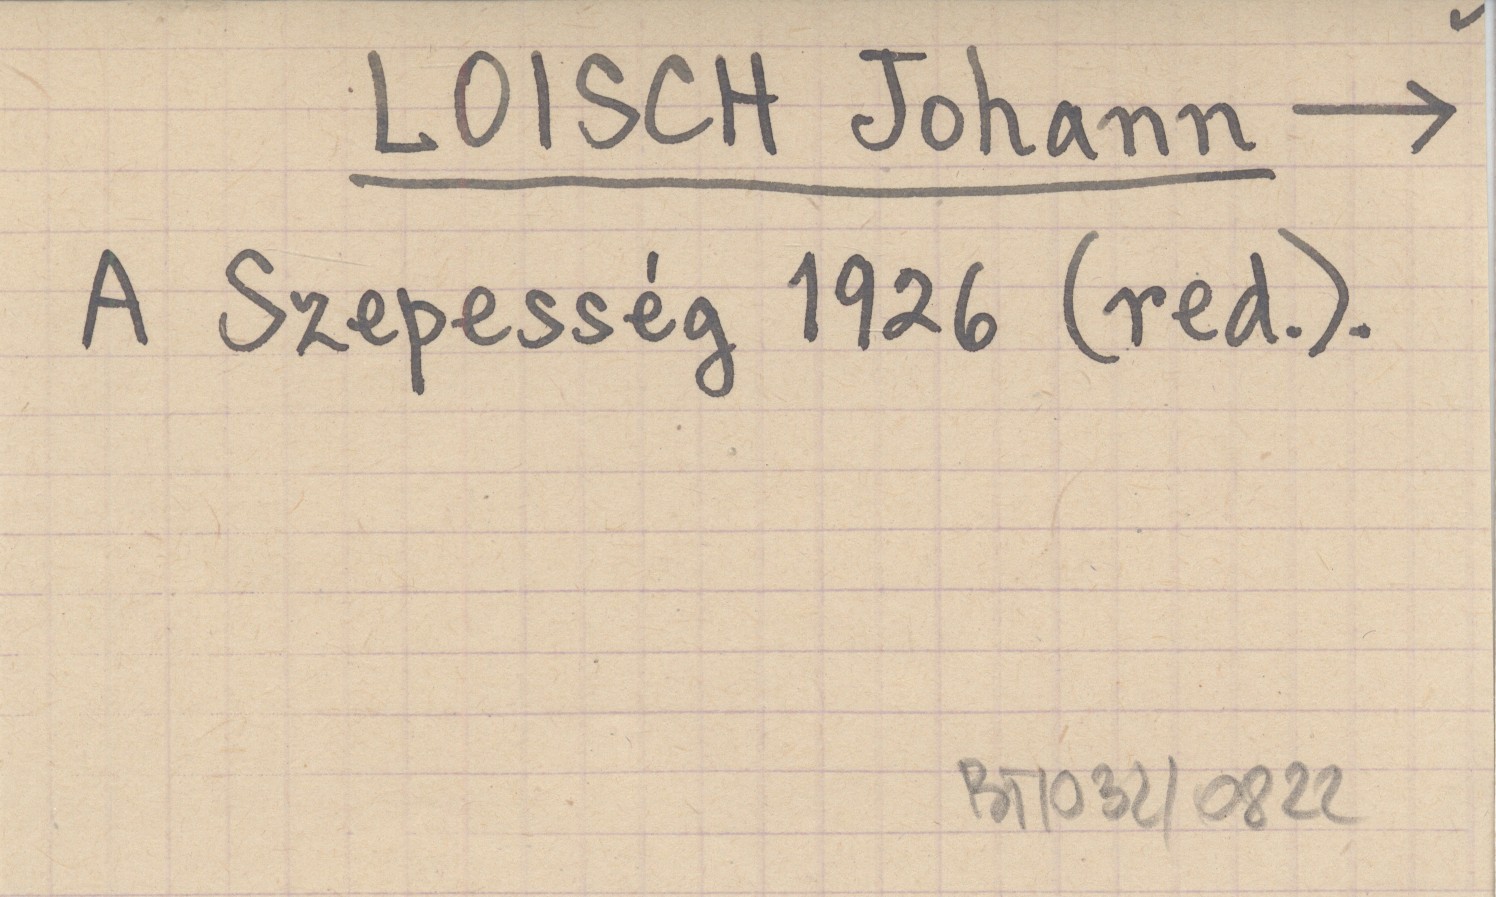 LOISCH Johann →
A Szepesség 1926 (red.).
BT/032/0822